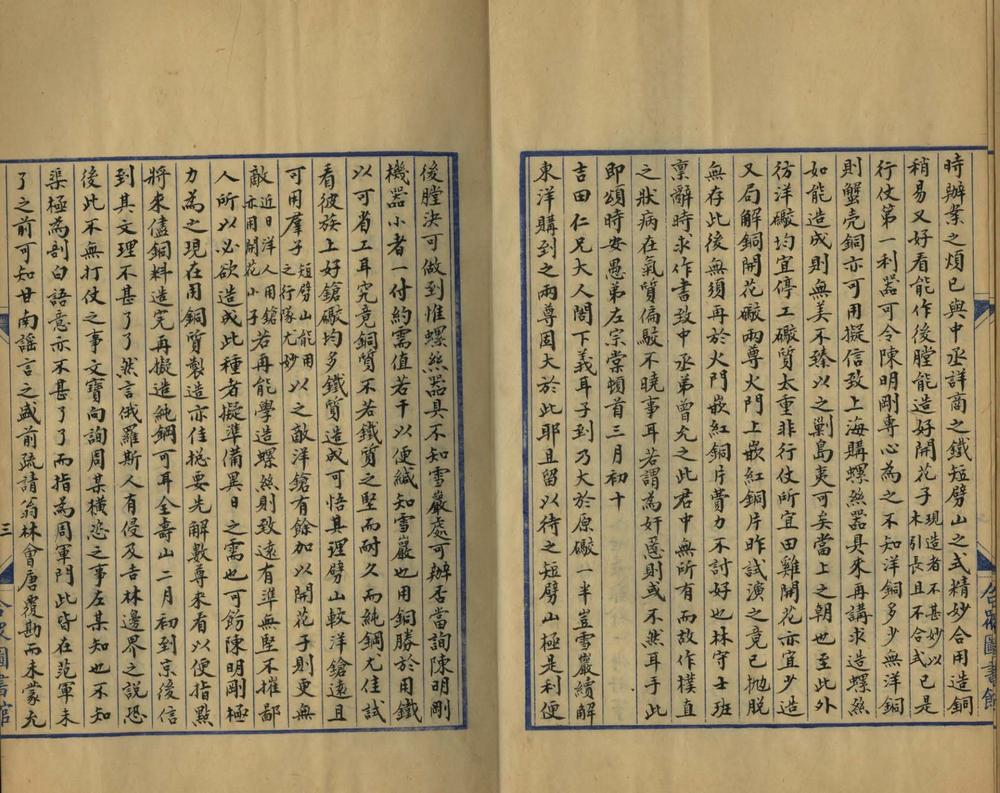 時辦案之煩已與中丞詳商之鐵短劈山之式精妙合用造銅
稍易又好看能作後膛能造好開花子現造者不甚妙以木引長且不合式已是
行仗第一利器可令陳明剛專心為之不知洋銅多少無洋銅
則蟹壳銅亦可用擬信致上海購螺絲器具來再講求造螺絲
如能造成則無美不臻以之剿島夷可矣當上之朝也至此外
彷洋礮均宜停工礮質太重非行仗所宜田雞開花亦宜少造
又局解銅開花礮兩尊火門上嵌紅銅片昨試演之竟已拋脱
無存此後無須再於火門嵌紅銅片費力不討好也林守士班
稟辭時求作書致中丞弟曾允之此君中無所有而故作樸直
之狀病在氣質偏駁不曉事耳若謂為奸慝則或不然耳手此
即頌時安愚弟左宗棠頓首三月初十
吉田仁兄大人閣下義耳子到乃大於原礮一半豈雪巖續解
東洋購到之兩尊固大於此耶且留以待之短劈山極是利便
後膛決可做到惟螺絲器具不知雪巖處可辦否當詢陳明剛
機器小者一付約需值若干以便緘知雪巖也用銅勝於用鐵
以可省工耳究竟銅質不若鐵質之堅而耐久而純鋼尤佳試
看彼族上好鎗礮均多鐵質造成可悟其理劈山較洋鎗遠且
可用羣子短劈山能用之行隊尤妙以之敵洋鎗有餘加以開花子則更無
敵近日洋人用鎗者亦用開花小子若再能學造螺絲則致遠有準無堅不摧鄙
人所以必欲造成此種者擬準備異日之需也可飭陳明剛極
力為之現在用銅質製造亦佳捴要先解數尊來看以便指點
將來儘銅料造完再擬造純鋼可耳全壽山二月初到京後信
到其文理不甚了了然言俄羅斯人有侵及吉林邊界之説恐
後此不無打仗之事文寶向詢周某橫恣之事左某知也不知
渠極為剖白語意亦不甚了了而指為周軍門此皆在范軍未
了之前可知甘南謡言之盛前疏請翁林會唐覆勘而未蒙允
三
合眾圖書館
合眾圖書館